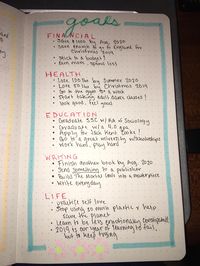 goals
FINANCIAL
• Save $1000 by Aug. 2020
• Save enough $ to go to England for
Christmas 2019
• Stick to a budget!
• Earn more, spend less
HEALTH
• Lose 100 lbs by Summer 2020
• Lose 50 lbs by Christmas 2019
• Gym 4x a week
• Start taking self care classes!
• Look good, feel good
EDUCATION
• Graduate SSC w/ AA in Sociology
• Graduate w/ a 4.0 GPA
• Apply to the Jack Kent Cooke!
• Get to a great university w/ scholarships
• Work hard, play hard
WRITING
• Finish another book by Aug. 2020
• Send something to a publisher
• Build The into a masterpiece
• Write everyday
LIFE
• Practice self love
• Stop using so much plastic & help
save the planet
• Learn to be less emotionally constipated
• 2019 is our year of learning to fail,
but to keep trying